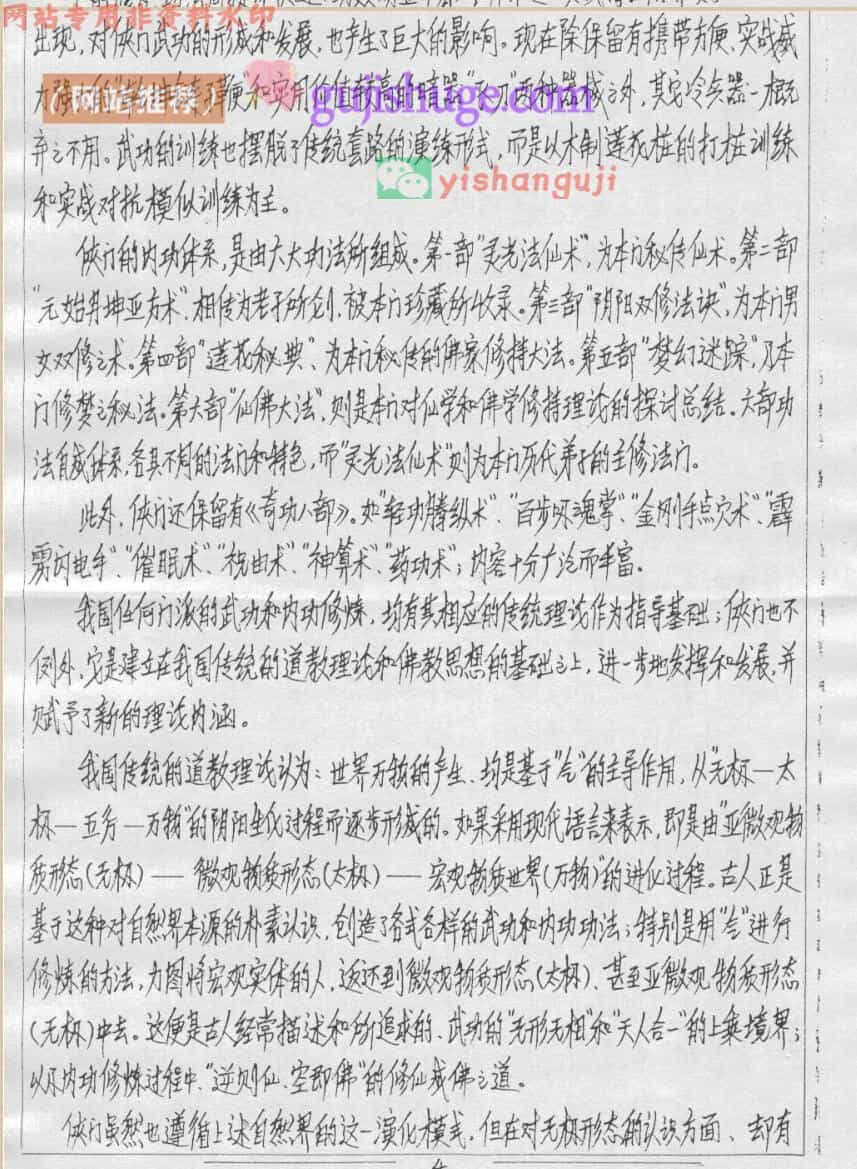 网站专用非资料水印
出现,对侠门武功的形成和发展,也产生了巨大的影响。现在除保留有携带方便、实战威
力强 和实用价值较高的暗器 两种器械之外,其它冷兵器一概
网站推荐
gujishuge.com
弃之不用。武功的训练也摆脱了传统套路的演练形式,而是以木制莲花桩的打桩训练
yishanguji
和实战对抗模似训练为主。
侠门的内功体系,是由六大功法所组成。第一部“灵光法仙术”,为本门秘传仙术。第二部
“元始 坤亚方术”.相传为老子所创,被本门珍藏所收录。第三部“阴阳双修法诀”,为本门男
女双修之术。第四部“莲花秘典”、为本门秘传的佛家修持大法。第五部“梦幻迷踪”,乃本
门修梦之秘法。第六部“仙佛大法”,则是本门对仙学和佛学修持理论的探讨总结。六部功
法自成体系,各具不同的法门和特色,而“灵光法仙术”则为本门历代弟子的主修法门。
此外,侠门还保留有《奇功八部》。如“轻功腾纵术”、“百步 魂掌”、“金刚手点穴术”、“霹
雳闪电手”、“催眠术”、“祝由术”、“神算术”、“药功术”;内容十分广泛而丰富.
我国任何门派的武功和内功修炼,均有其相应的传统理论作为指导基础;侠门也不
例外,它是建立在我国传统的道教理论和佛教思想的基础之上,进一步地发挥和发展,并
赋予了新的理论内涵。
我国传统的道教理论认为:世界万物的产生、均是基于“炁”的主导作用,从“无极—太
极—五行—万物”的阴阳生化过程而逐步形成的。如果采用现代语言来表示,即是由“亚微观物
质形态(无极)——微观物质形态(太极)——宏观物质世界(万物)”的进化过程。古人正是
基于这种对自然界本源的朴素认识,创造了各式各样的武功和内功功法;特别是用“炁”进行
修炼的方法,力图将宏观实体的人,返还到微观物质形态(太极)、甚至亚微观物质形态
(无极)中去。这便是古人经常描述和所追求的、武功的“无形无相”和“天人合一”的上乘境界;
以及内功修炼过程中、“逆则仙、空即佛”的修仙成佛之道。
侠门虽然也遵循上述自然界的这一演化模式,但在对无极形态的认识方面、却有
4